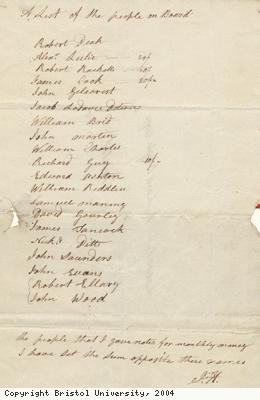 A List of the people on Board
Robert Deak
Alexr Leslie — 20/-
Robert Rachell — 20/-
James Cook — 20/-
John Gilcrist
Jacob
William Brid
John martin
William Charles
Richard Guy — 10/-
Edward Ashton
William Riddler
Samuel maning
David Gourley
James Hancock
Nichs Ditto
John Saunders
John Evans
Robert Ellary
John Wood
the people that I gave notes for monthly money
I have set the sum opposite there names
J.H.
Copyright Bristol University, 2004